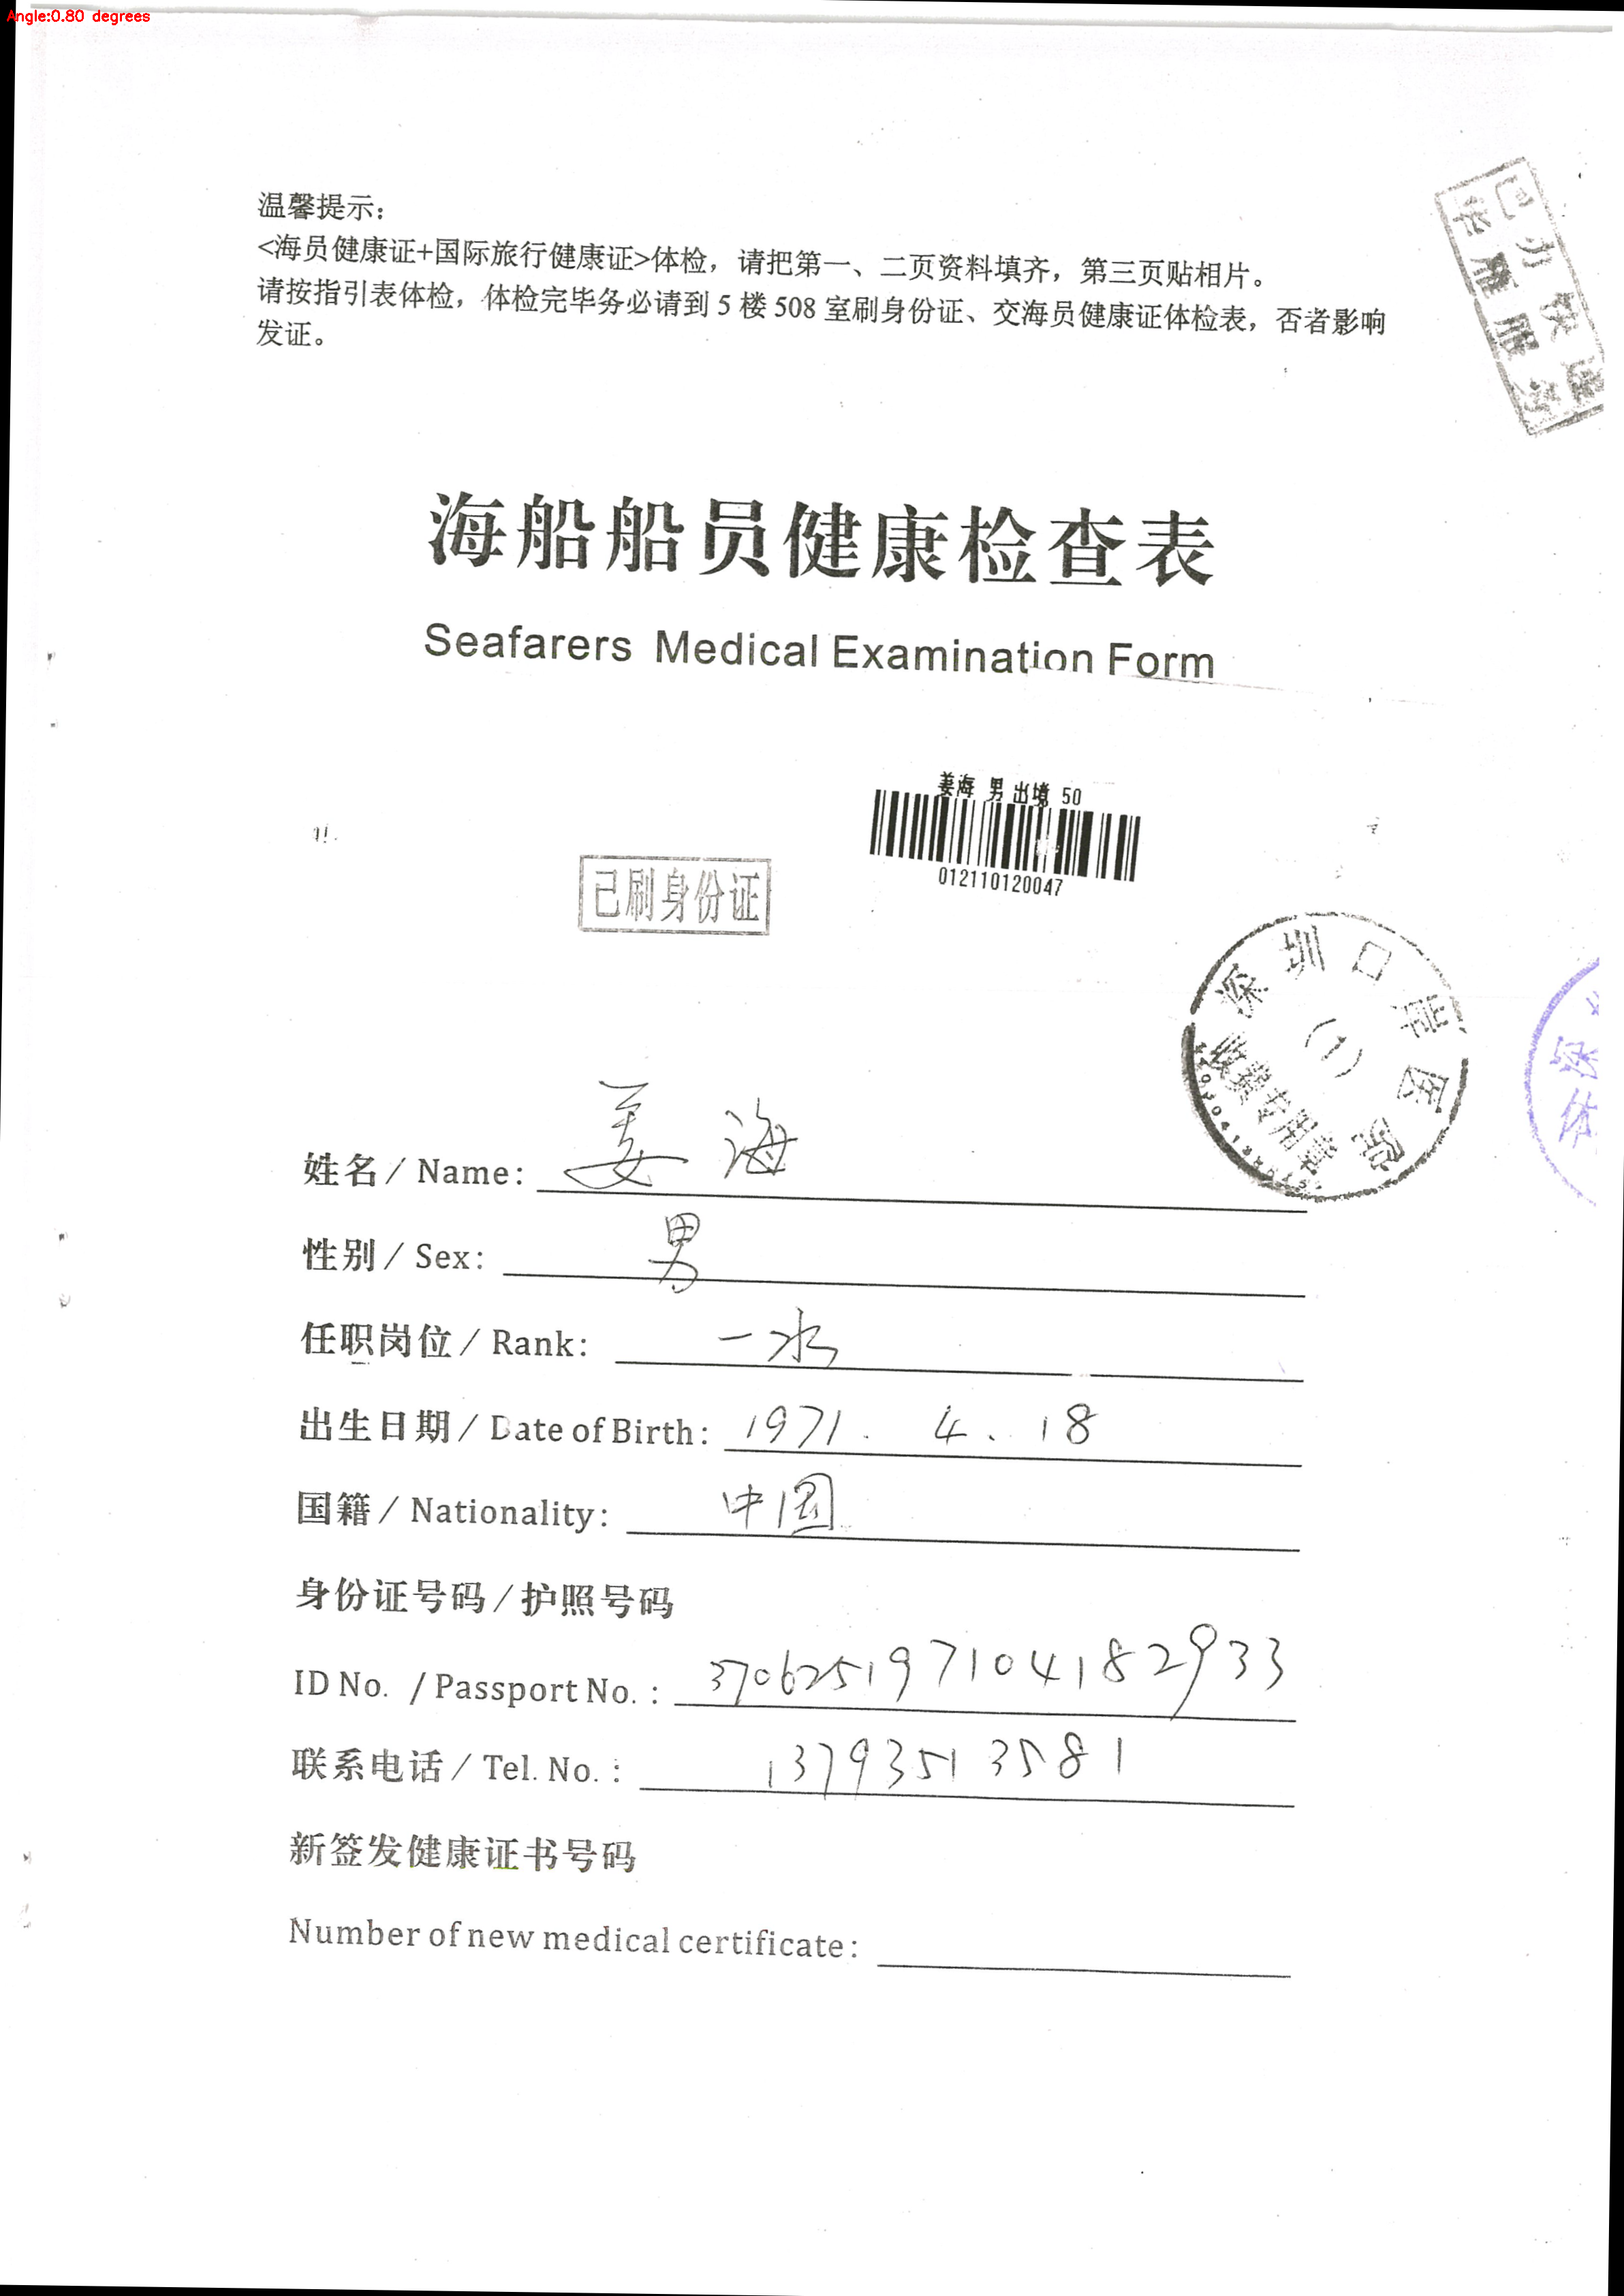 Angle:0.80 degrees
温馨提示：
<海员健康证+国际旅行健康证>体检，请把第一、二页资料填齐，第三页贴相片。
请按指引表体检，体检完毕务必请到 5 楼 508 室刷身份证、交海员健康证体检表，否者影响
发证。
已办快递
海船船员健康检查表
Seafarers Medical Examination Form
姜海 男 出境 50
012110120047
已刷身份证
深圳口岸医院
(1)
收费专用章
姓名/Name: 姜海
性别/Sex: 男
任职岗位/Rank: 一水
出生日期/Date of Birth: 1971. 4. 18
国籍/Nationality: 中国
身份证号码/护照号码
ID No. /Passport No. : 370625197104182933
联系电话/Tel. No. : 13793513581
新签发健康证书号码
Number of new medical certificate: